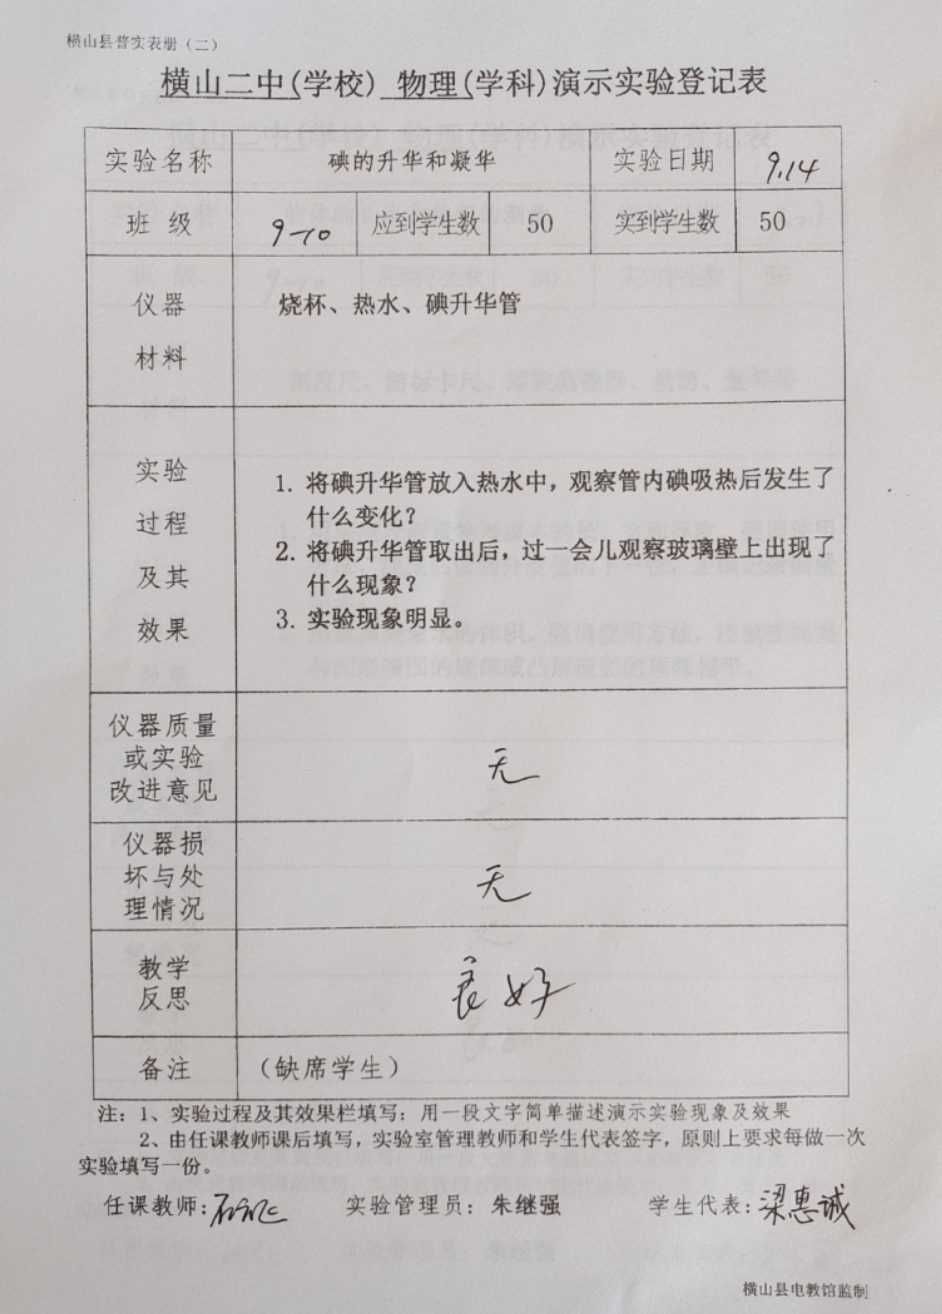 横山县普实表册（二）
横山二中(学校) 物理(学科)演示实验登记表
实验名称 碘的升华和凝华 实验日期 9.14
班 级 9-10 应到学生数 50 实到学生数 50
仪器
材料
烧杯、热水、碘升华管
实验
过程
及其
效果
1. 将碘升华管放入热水中，观察管内碘吸热后发生了
什么变化？
2. 将碘升华管取出后，过一会儿观察玻璃壁上出现了
什么现象？
3. 实验现象明显。
仪器质量
或实验
改进意见
无
仪器损
坏与处
理情况
无
教学
反思
良好
备注 （缺席学生）
注：1、实验过程及其效果栏填写：用一段文字简单描述演示实验现象及效果
2、由任课教师课后填写，实验室管理教师和学生代表签字，原则上要求每做一次
实验填写一份。
任课教师: 实验管理员：朱继强 学生代表:梁惠诚
横山县电教馆监制